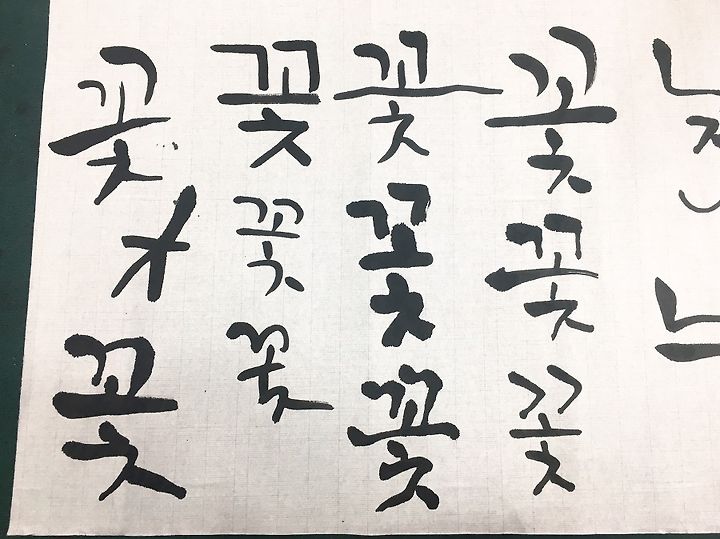 꽃 꽃 꽃 꽃
꽃 꽃 꽃
꽃 꽃 꽃 꽃